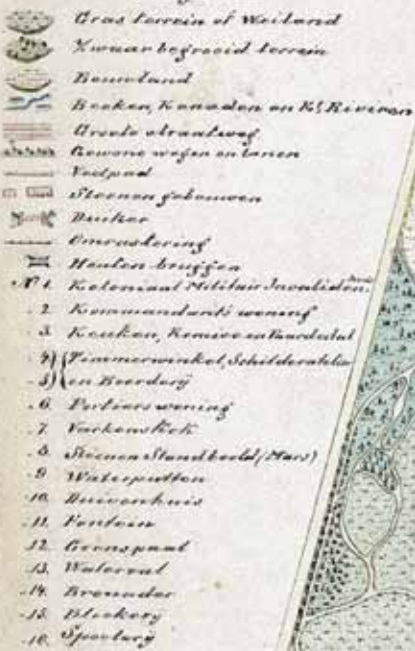 Gras terrein of Weiland
Zwaar begroeid terrein
Bouwland
Beeken, Kanaden en Kl. Rivieren
Groote straatweg
Gewone wegen en lanen
Voetpad
Steenen gebouwen
Duiker
Omrastering
Houten bruggen
No 1. Koloniaal Militair Invaliden
. 2. Kommandants woning
. 3. Keuken, Remise en Paardestal
. 4) Timmerwinkel, Schilderatelier
. 5) en Boerderij
. 6. Portierswoning
. 7. Varkenskok
. 8. Steenen Standbeeld (Mars)
. 9 Waterputten
. 10. Duivenhuis
. 11. Fontein
. 12. Grenspaal
. 13. Waterval
. 14.
. 15. Bleekery
. 16. Spoelery